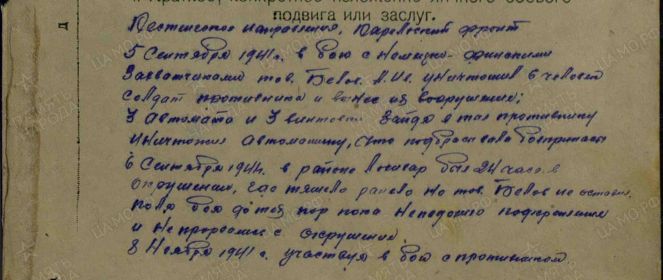 1. Краткое, конкретное изложение личного боевого
подвига или заслуг.
направления, Карельский фронт
5 Сентября 1941 г. в бою с Немецко-финскими
Захватчиками тов. Белов уничтожил 6 человек
Солдат противника и вынес их вооружение;
3 автомата и 3 винтовки Зайдя в тыл противнику
Уничтожил автомашину, что подбрасывала боеприпасы
6 Сентября 1941 г. в районе был 24 часа в
окружении, его тяжело ранело но тов. Белов не оставил
поля боя до тех пор пока неподошло подкрепление
и не прорвались с окружения.
8 Ноября 1941 г. участвуя в бою с противником